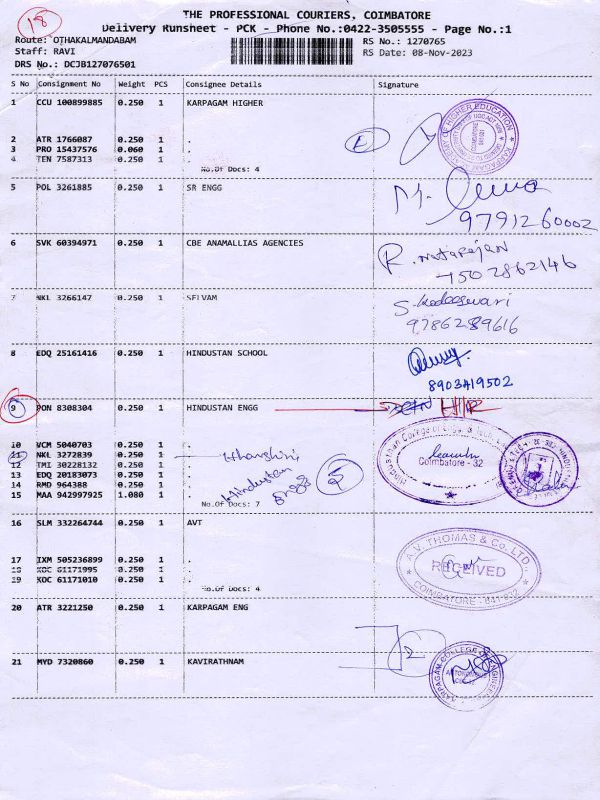 18
THE PROFESSIONAL COURIERS, COIMBATORE
Delivery Runsheet - PCK - Phone No.:0422-3505555 - Page No.:1
Route: OTHAKALMANDABAM RS No.: 1270765
Staff: RAVI RS Date: 08-Nov-2023
DRS No.: DCJB127076501
S No Consignment No Weight PCS Consignee Details Signature
1 CCU 100899885 0.250 1 KARPAGAM HIGHER
2 ATR 1766087 0.250 1 .
3 PRO 15437576 0.060 1 .
4 TEN 7587313 0.250 1 .
No.Of Docs: 4
5 POL 3261885 0.250 1 SR ENGG
9791260002
6 SVK 60394971 0.250 1 CBE ANAMALLIAS AGENCIES
R. Natarajan
7502862146
7 NKL 3266147 0.250 1 SELVAM
S. Kodeeswari
9786289616
8 EDQ 25161416 0.250 1 HINDUSTAN SCHOOL
8903419502
9 PON 8308304 0.250 1 HINDUSTAN ENGG
10 VCM 5040703 0.250 1 .
11 NKL 3272839 0.250 1 .
12 TMI 30228132 0.250 1 .
13 EDQ 20183073 0.250 1 .
14 RMD 964388 0.250 1 .
15 MAA 942997925 1.080 1 .
No.Of Docs: 7
Hindustan
Engg
Coimbatore - 32
16 SLM 332264744 0.250 1 AVT
17 IXM 505236899 0.250 1 .
18 KOC 61171995 0.250 1 .
19 KOC 61171010 0.250 1 .
No.Of Docs: 4
A.V. THOMAS & Co. LTD.
RECEIVED
COIMBATORE - 641 032
20 ATR 3221250 0.250 1 KARPAGAM ENG
21 MYD 7320860 0.250 1 KAVIRATHNAM
KARPAGAM COLLEGE OF ENGINEERING
AUTONOMOUS